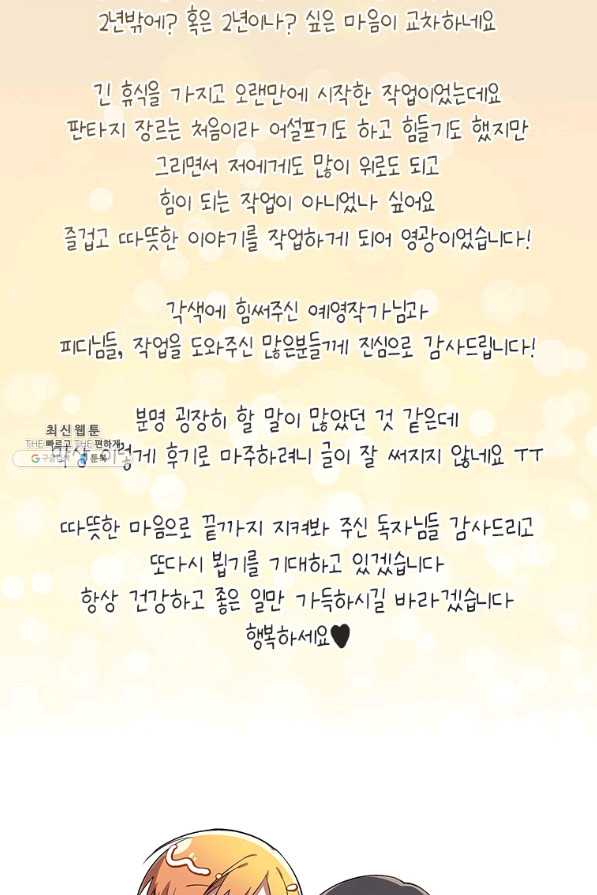 2년밖에? 혹은 2년이나? 싶은 마음이 교차하네요
긴 휴식을 가지고 오랜만에 시작한 작업이었는데요
판타지 장르는 처음이라 어설프기도 하고 힘들기도 했지만
그러면서 저에게도 많이 위로도 되고
힘이 되는 작업이 아니었나 싶어요
즐겁고 따뜻한 이야기를 작업하게 되어 영광이었습니다!
각색에 힘써주신 예영작가님과
피디님들, 작업을 도와주신 많은분들께 진심으로 감사드립니다!
분명 굉장히 할 말이 많았던 것 같은데
최신웹툰
THE 빠르고 THE 편하게
막상 이렇게 후기로 마주하려니 글이 잘 써지지 않네요 ㅜㅜ
툰북
따뜻한 마음으로 끝까지 지켜봐 주신 독자님들 감사드리고
또다시 뵙기를 기대하고 있겠습니다
항상 건강하고 좋은 일만 가득하시길 바라겠습니다
행복하세요♥